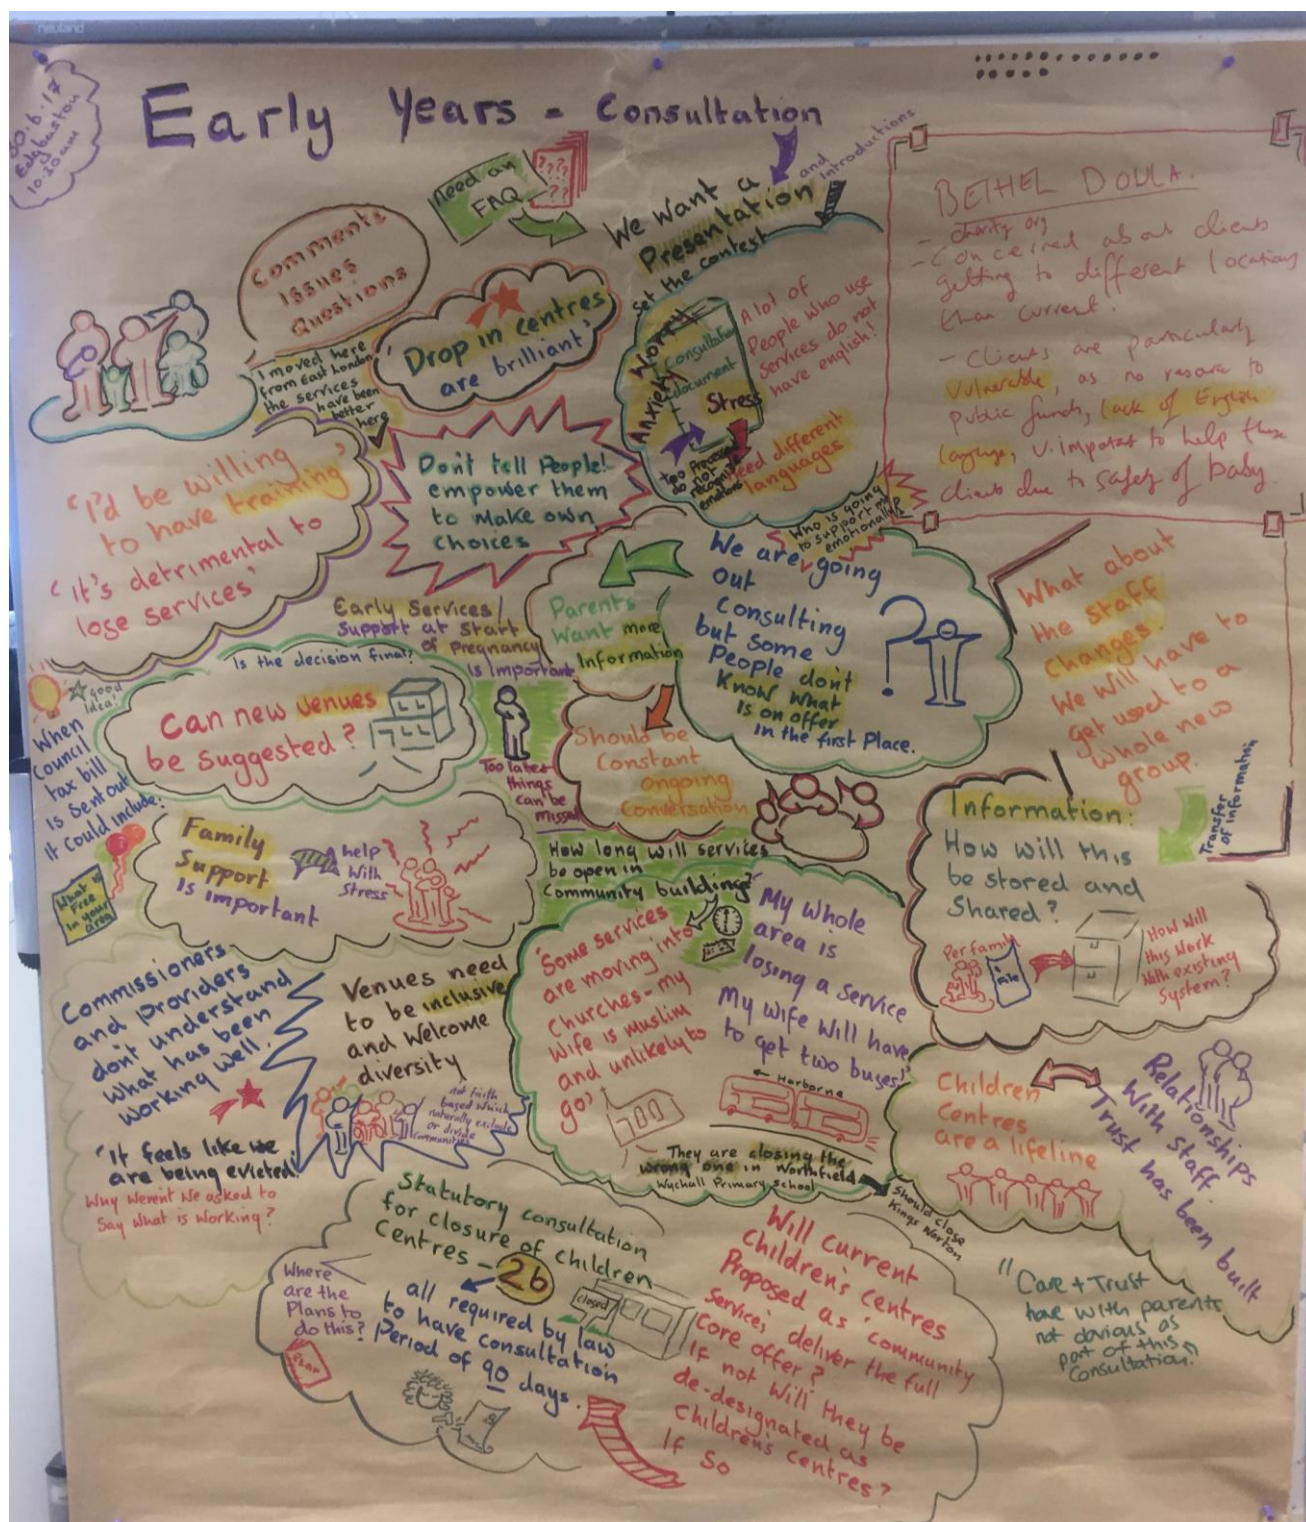 neuland
Edgbaston
10.30am
Early Years - Consultation
and
Introductions
Need an
FAQ
????
??
??
We Want a
Presentation
Set the context
Comments
Issues
Questions
'Drop in centres
are brilliant'
I moved here
from East London
the services
have been
better
here
Worry
Anxiety
Consultation
document
Stress
A lot of
People who use
services do not
have english!
need different
languages
BETHEL DOULA.
- charity org
- Concerned about clients
getting to different locations
than current.
- Clients are particularly
vulnerable, as no
public funds, lack of English
language, v. important to help these
clients due to safety of baby.
'I'd be willing
to have training'
'It's detrimental to
lose services'
Don't tell People!
empower them
to make own
choices
Who is going
to support me
emotionally?
We are going
out
consulting
but some
People don't
Know What
is on offer
in the first Place.
?
Parents
Want more
Information
Early Services/
Support at start
of pregnancy
is Important
Too late
things
can be
missed
Should be
Constant
ongoing
Conversation
What about
the staff
changes.
We will have to
get used to a
whole new
group.
Transfer
of information
Is the decision final?
Can new venues
be suggested?
good
idea!
When
council
tax bill
is sent out
it could include:
What is
Free
in your
area
Family
Support
is important
help
With
Stress
How long will services
be open in
Community building?
Information:
How will this
be stored and
Shared?
Per family
file
How will
this work
with existing
System?
Commissioners
and providers
don't understand
what has been
working well.
"It feels like we
are being evicted!"
Why weren't we asked to
Say what is working?
Venues need
to be inclusive
and welcome
diversity
not faith
based which
naturally exclude
or divide
communities
'Some services
are moving into
churches - my
wife is muslim
and unlikely to
go'
'My whole
area is
losing a service
My wife will have
to get two buses!'
← Harborne
They are closing the
wrong one in Northfield
Wychall Primary school
Should close
Kings Norton
Children
Centres
are a lifeline
Relationships
With staff.
Trust has been built
Statutory consultation
for closure of children
Centres - 26
all required by law
to have consultation
Period of 90 days.
closed
Where
are the
Plans to
do this?
PLAN
Will current
children's centres
Proposed as 'community
services' deliver the full
core offer?
If not will they be
de-designated as
children's centres?
If So
"Care + Trust
have with parents
not obvious as
part of this
Consultation."